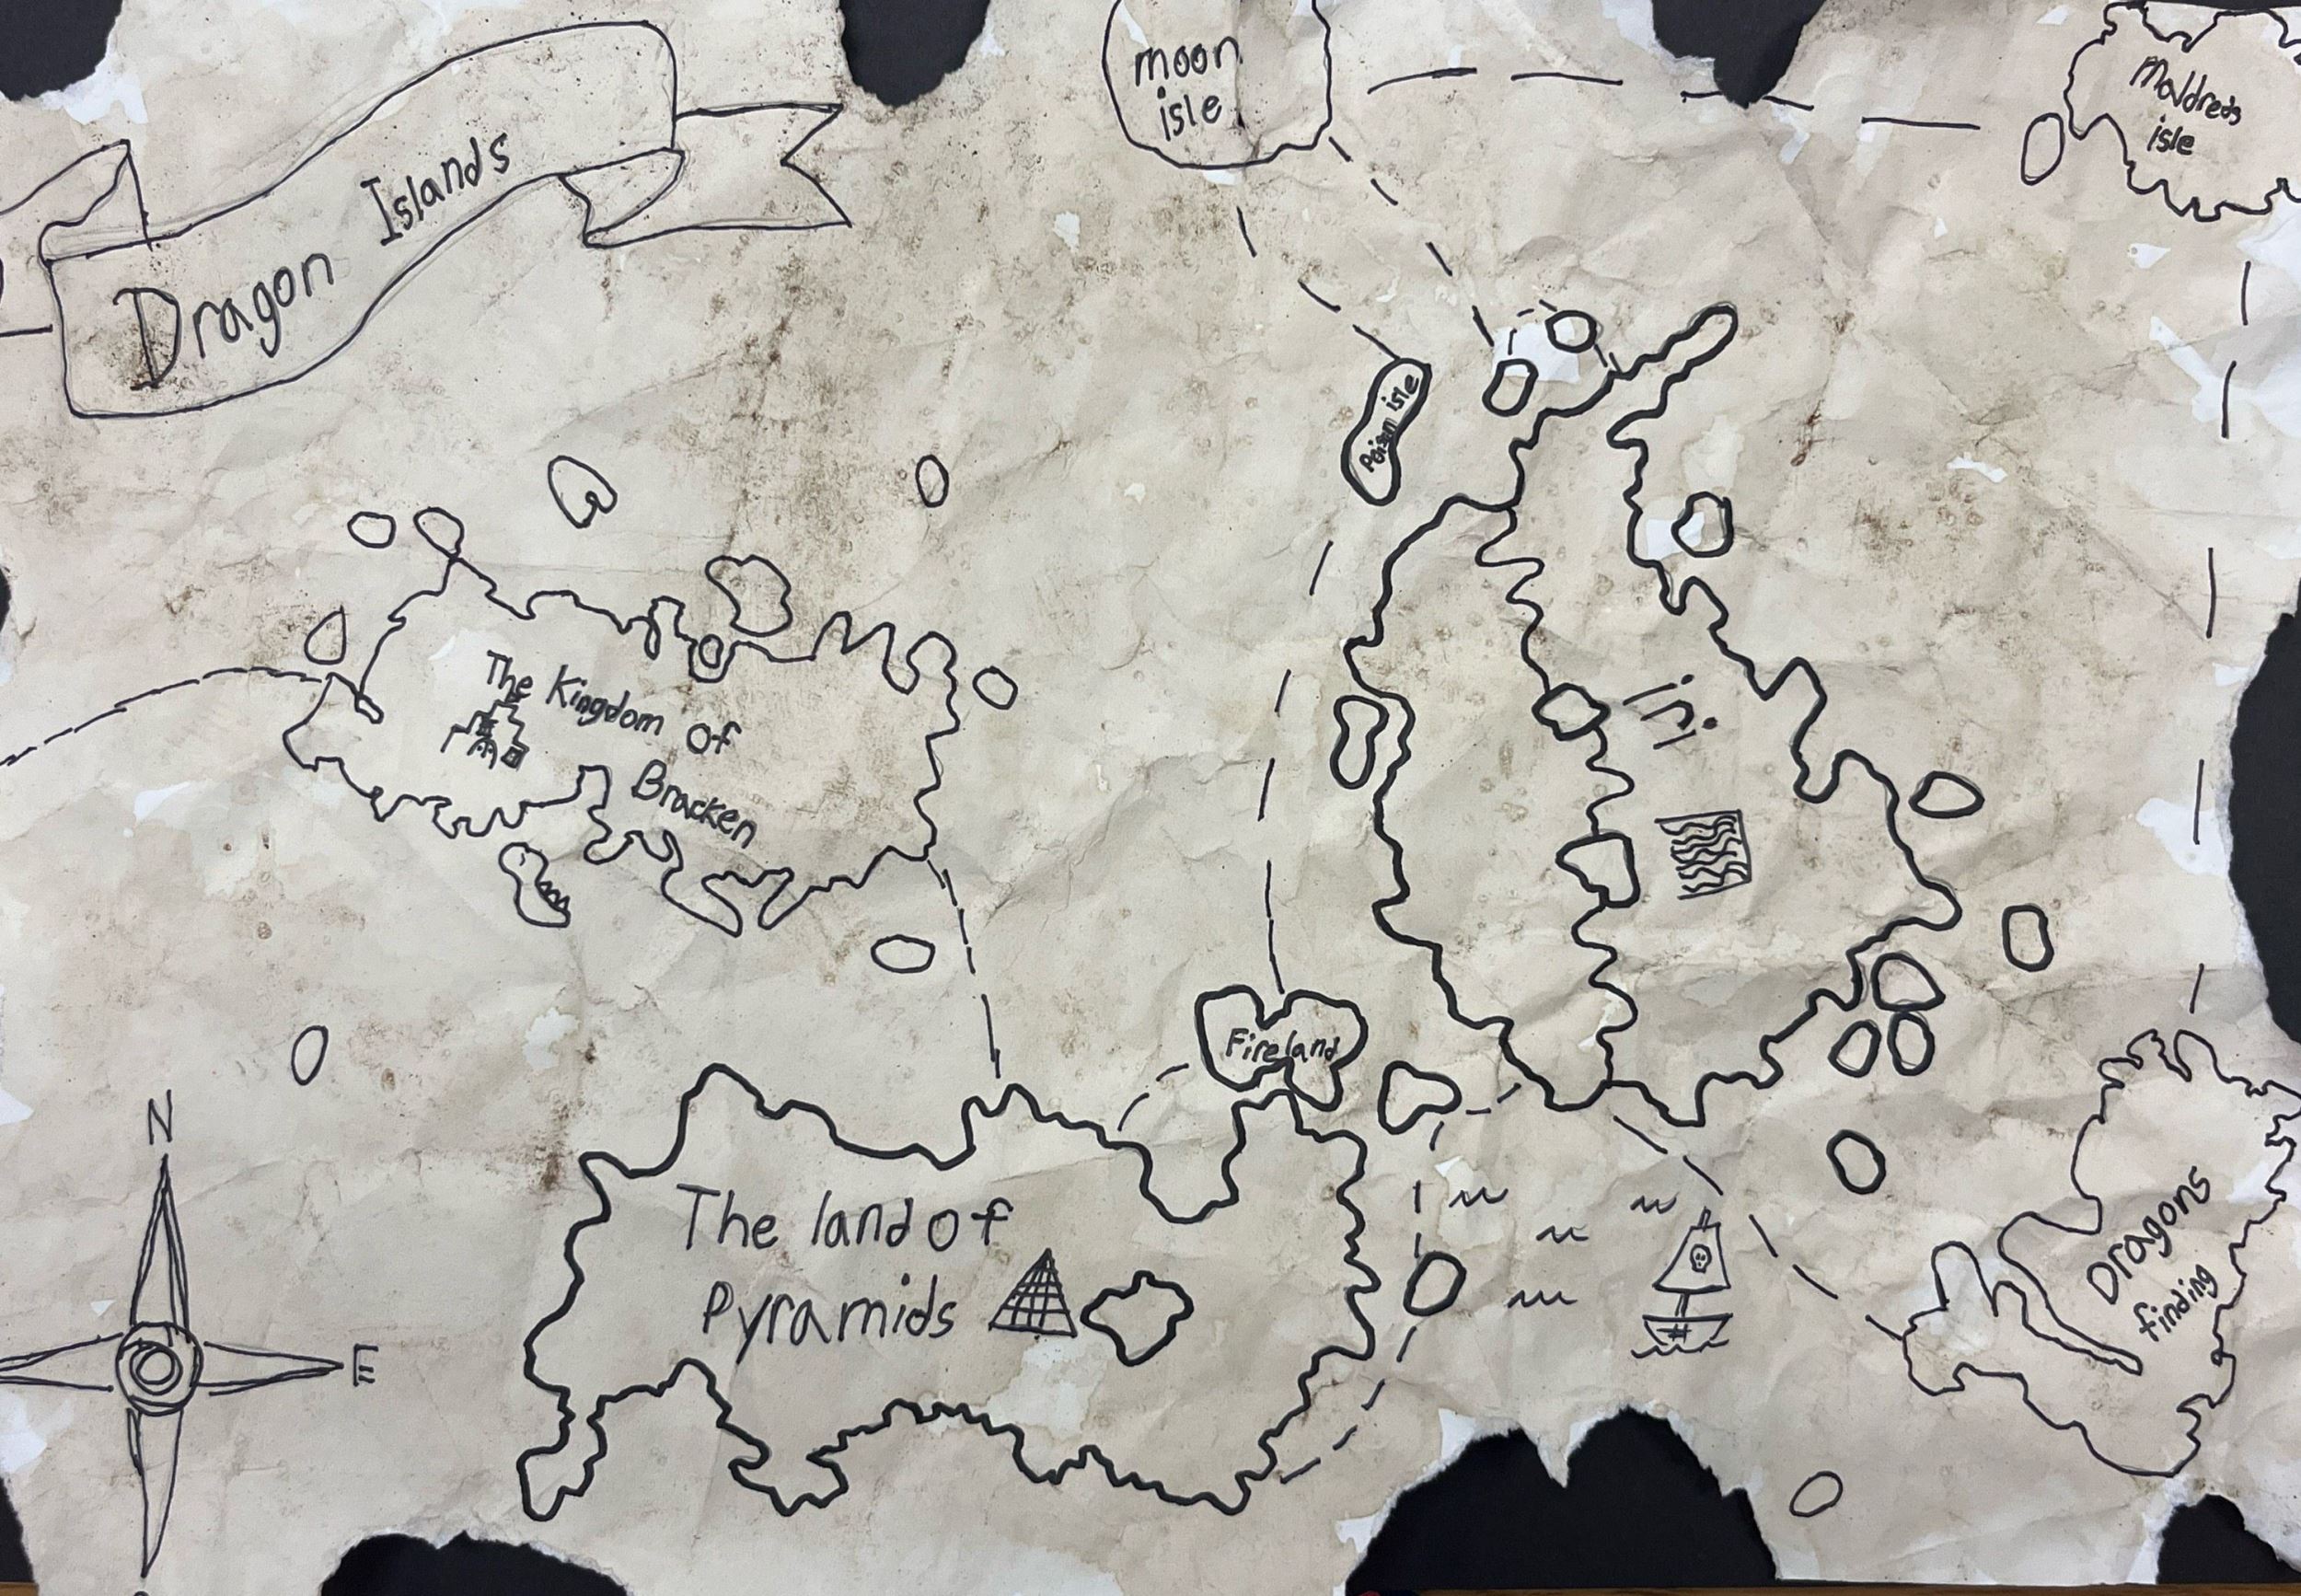 Dragon Islands
moon
isle
Maldreds
isle
Poison isle
The Kingdom of
Bracken
Fireland
The land of
Pyramids
Dragons
finding
N
E